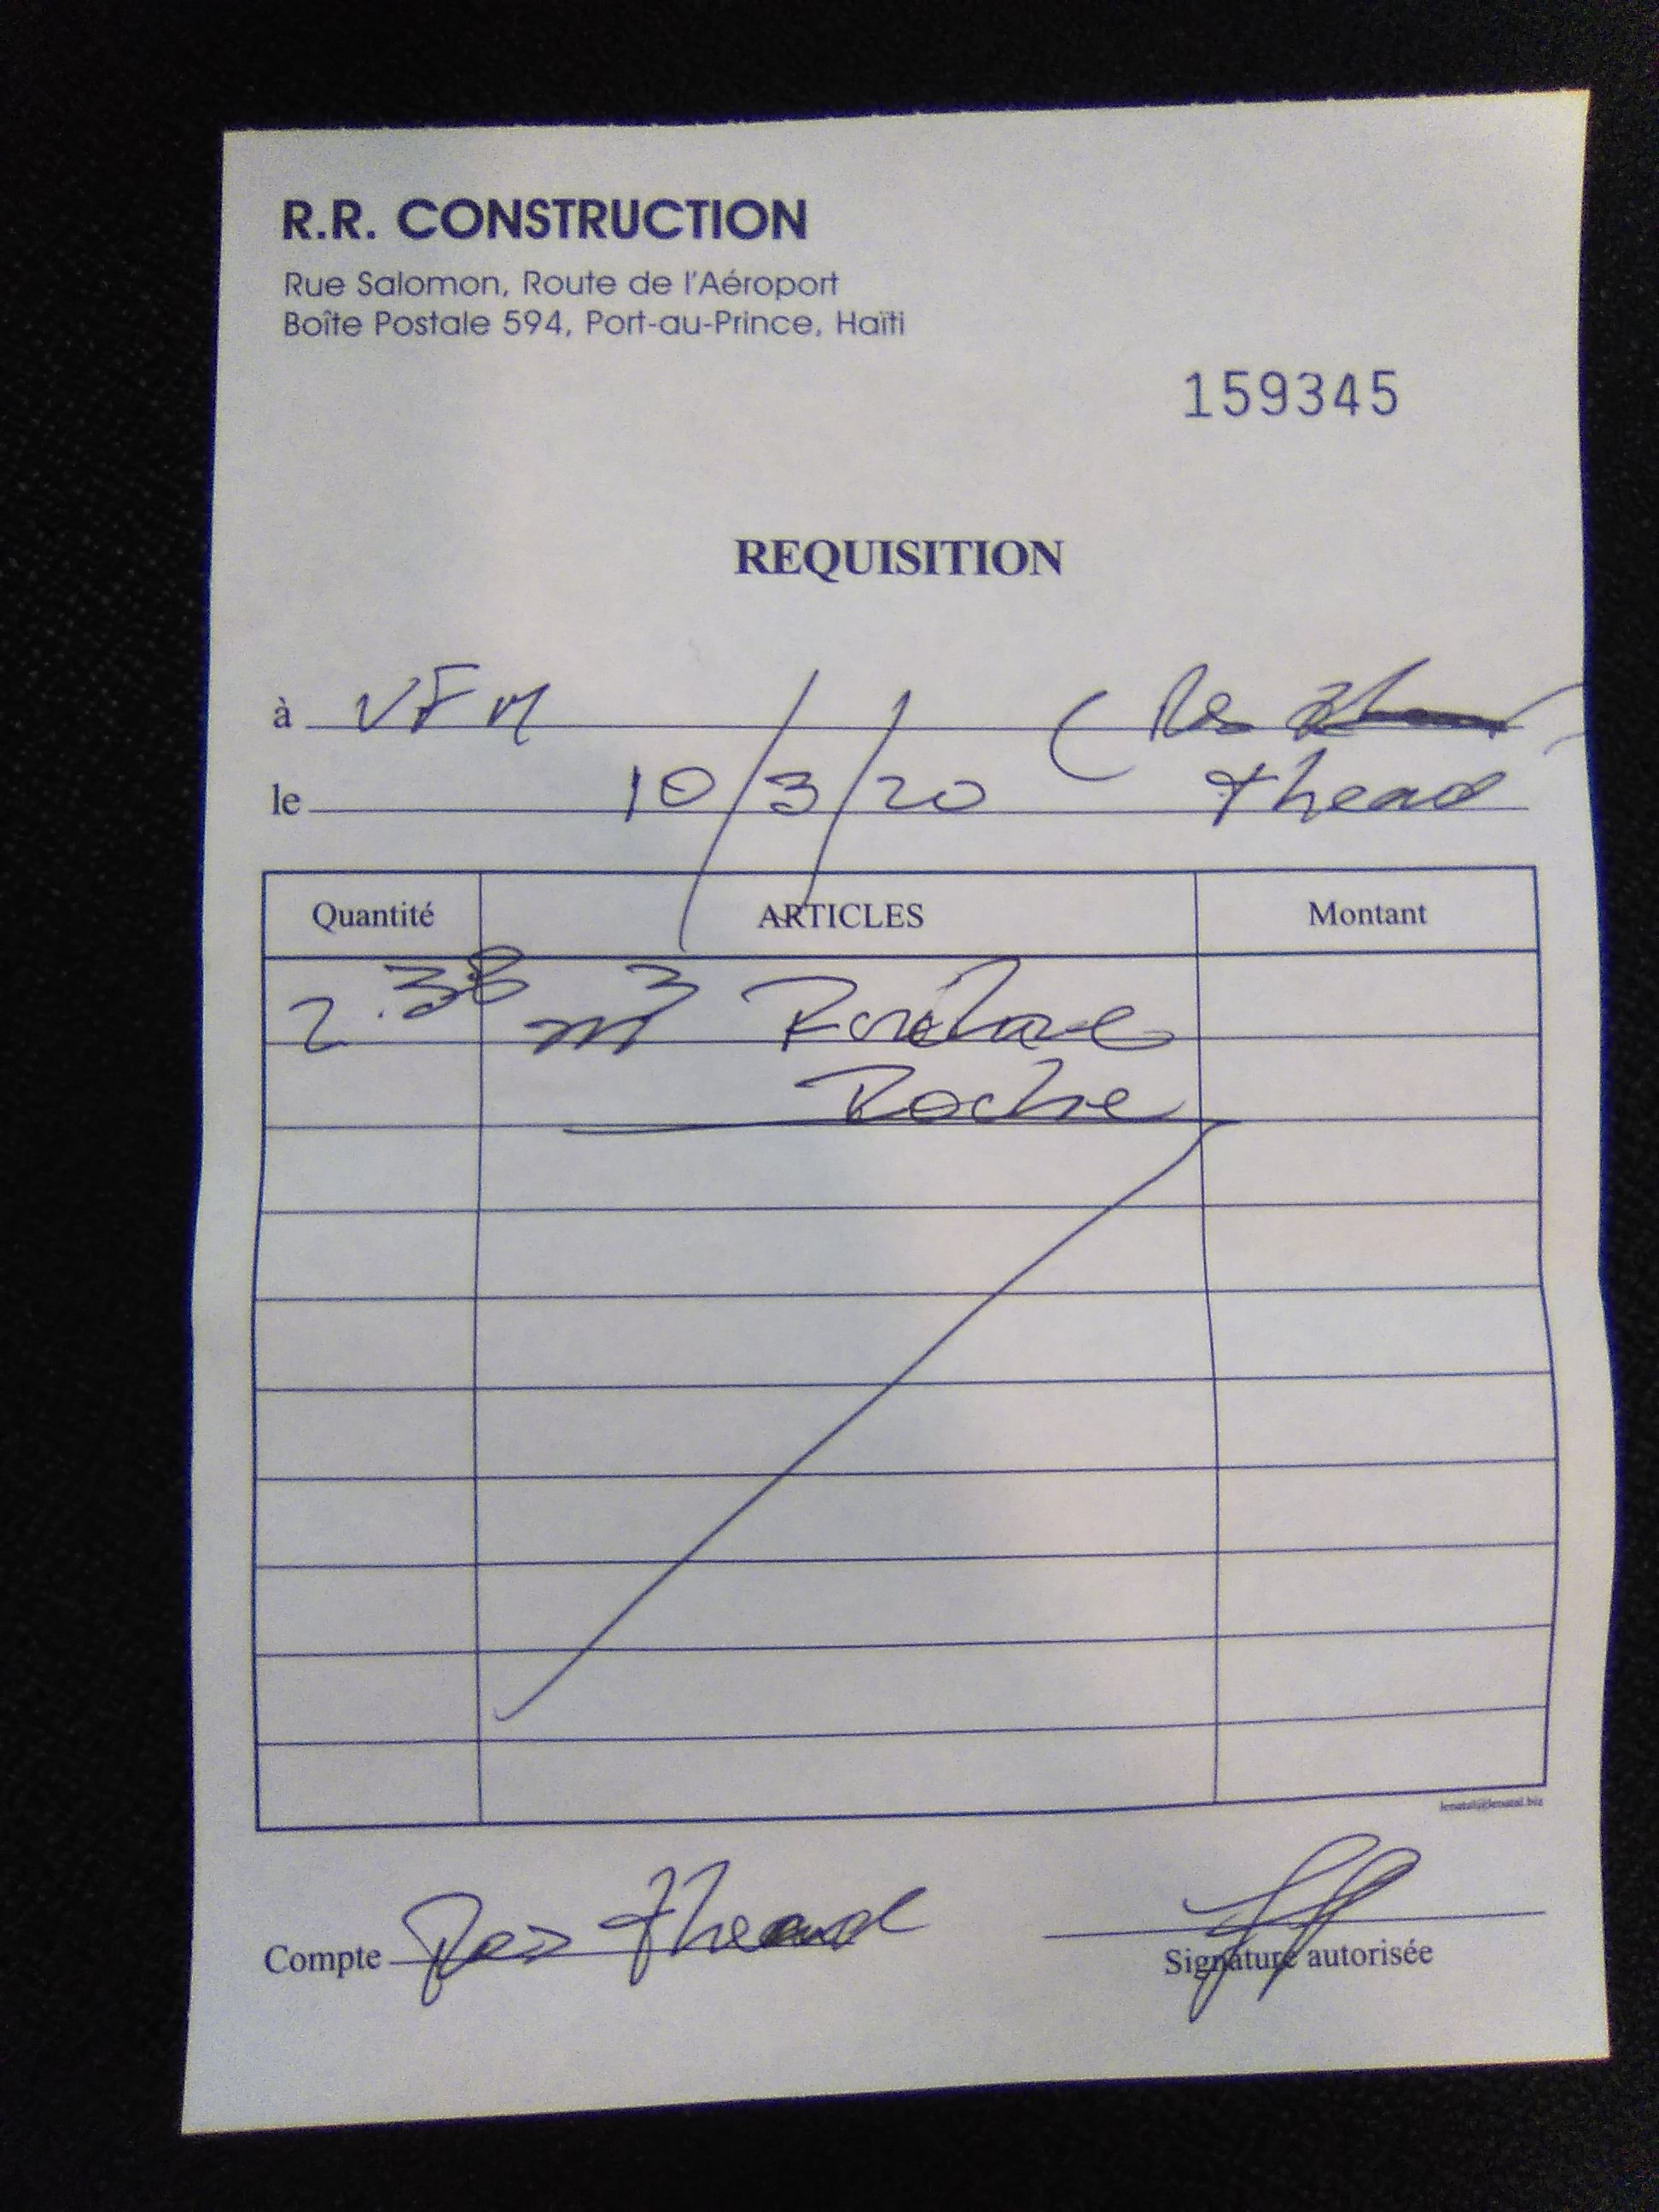 R.R. CONSTRUCTION
Rue Salomon, Route de l'Aéroport
Boîte Postale 594, Port-au-Prince, Haïti
159345
REQUISITION
à VFM (Res
le 10/3/20 thead
Quantité ARTICLES Montant
2.38 m3
Roche
lenatal@lenatal.biz
Compte Res Theard
Signature autorisée